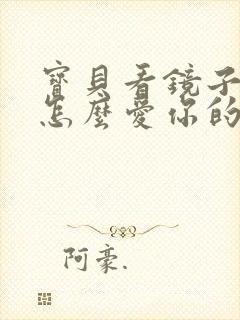 寶貝看鏡子
怎麼愛你的
阿豪.